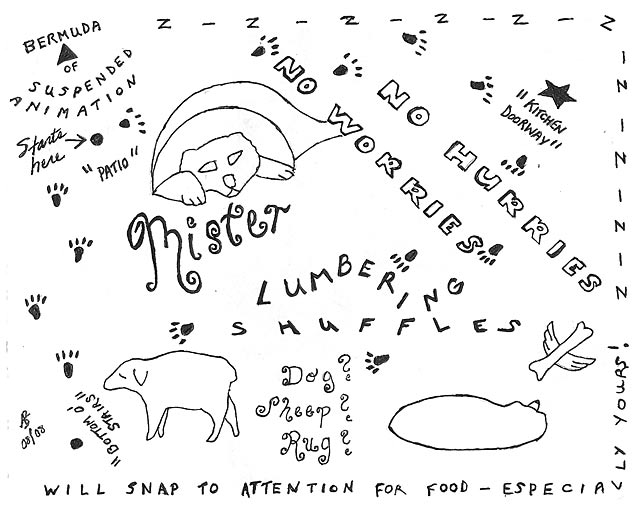 Z - Z - Z - Z - Z - Z - Z - Z - Z - Z - Z
BERMUDA
OF
SUSPENDED
ANIMATION
Starts
here
"PATIO"
NO WORRIES
NO HURRIES
"KITCHEN
DOORWAY"
Mister
LUMBERING
SHUFFLES
Dog?
Sheep?
Rug?
"BOTTOM O'
STAIRS"
WILL SNAP TO ATTENTION FOR FOOD – ESPECIALLY YOURS!